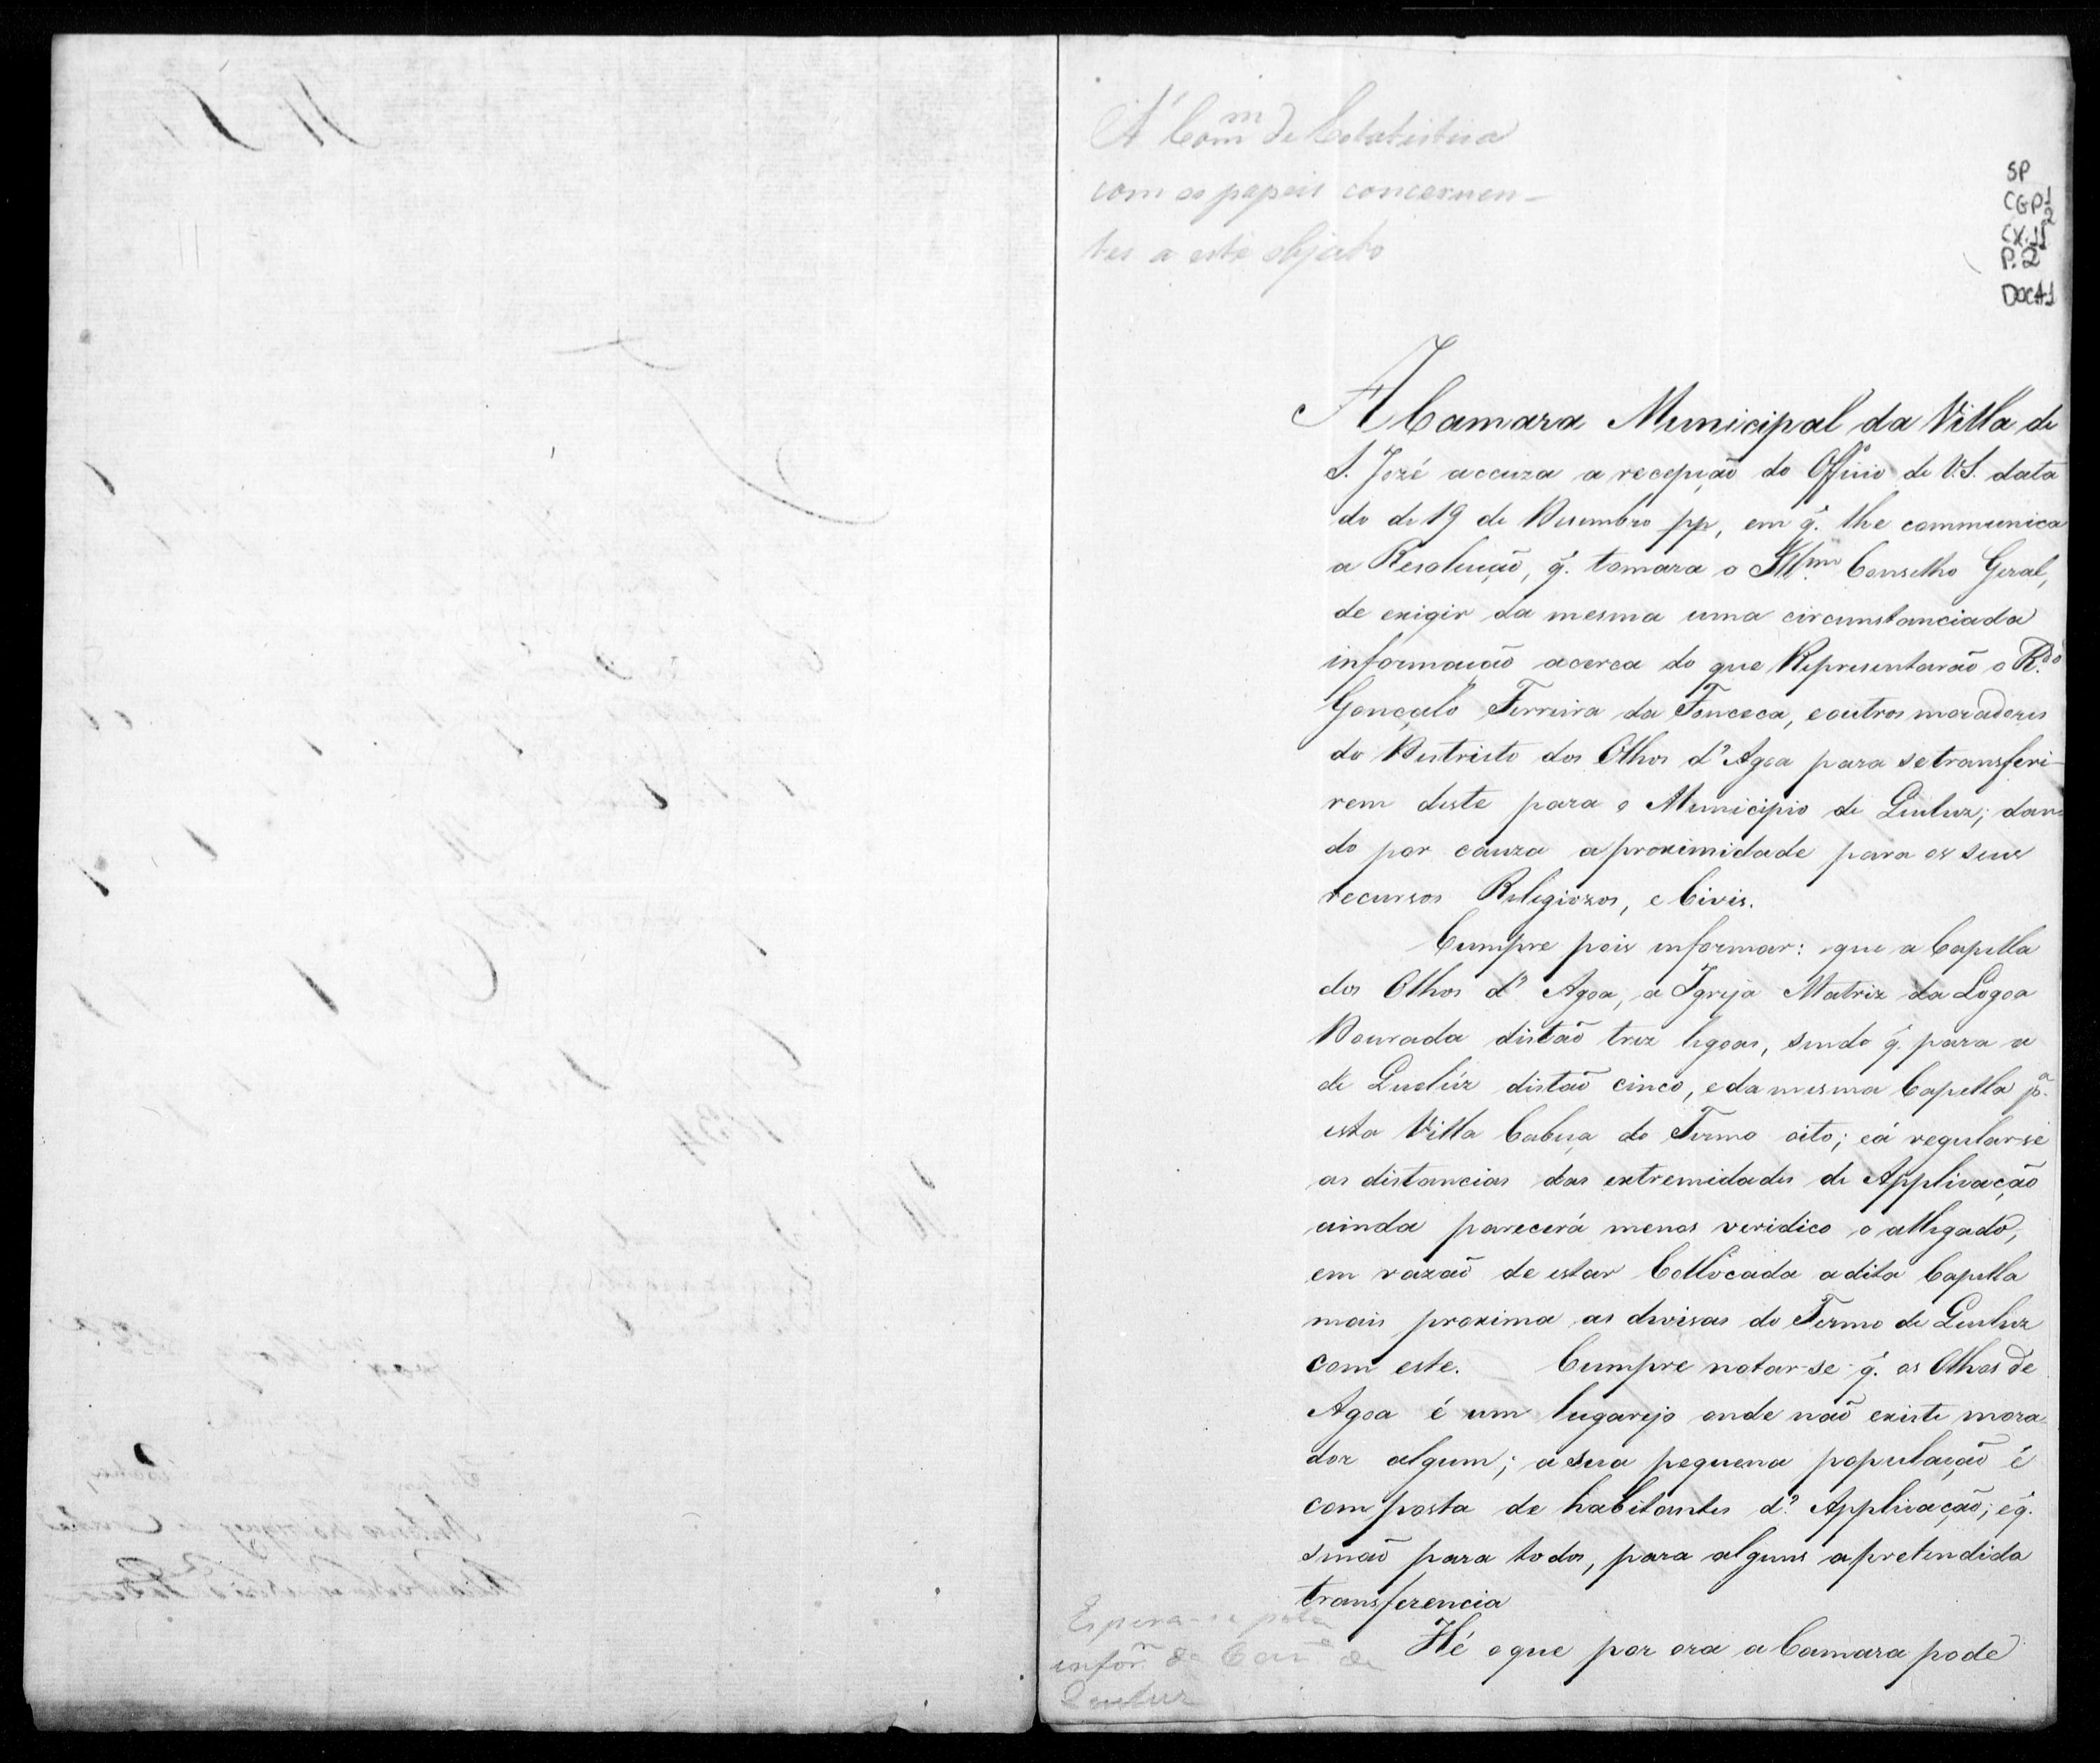 Á Com.m de Estatistica
com os papeis concernen-
tes a este objeto
SP
CGP1
2
CX.11
P.2
DOC41
A Camara Municipal da Villa de
S. Jozé accuza a recepção do Officio de V.S. data
do de 19 de Dezembro pp, em q̃. lhe communica
a Resolução, q̃. tomara o Ill.mo Conselho Geral,
de exigir da mesma uma circumstanciada
informação acerca do que Representarão o R.do
Gonçalo Ferreira da Fonceca, e outros moradores
do Destricto dos Olhos d'Agoa para se transferi-
rem deste para o Municipio de Queluz; dan-
do por cauza a proximidade para os seus
recursos Religiozos, e Civis.
Cumpre pois informar: que a Capella
dos Olhos d' Agoa, a Igreja Matriz da Lagoa
Dourada distão trez legoas, sendo q̃. para a
de Quelúz distão cinco, e da mesma Capella p.a
esta Villa Cabeça do Termo oito; e á regular-se
as distancias das extremidades de Applicação
ainda parecerá menos veridico o allegado,
em razaõ de estar Collocada a dita Capella
mais proxima as divisas do Termo de Queluz
com este. Cumpre notar-se q̃. os Olhos de
Agoa é um lugarejo onde naõ existe mora
dor algum; a sua pequena população é
composta de habitantes d.a Applicação; e q̃.
sinaõ para todos, para alguns a pretendida
transferencia
Hé o que por ora a Camara pode
Espera-se pela
infor.m da Cam.e de
Queluz